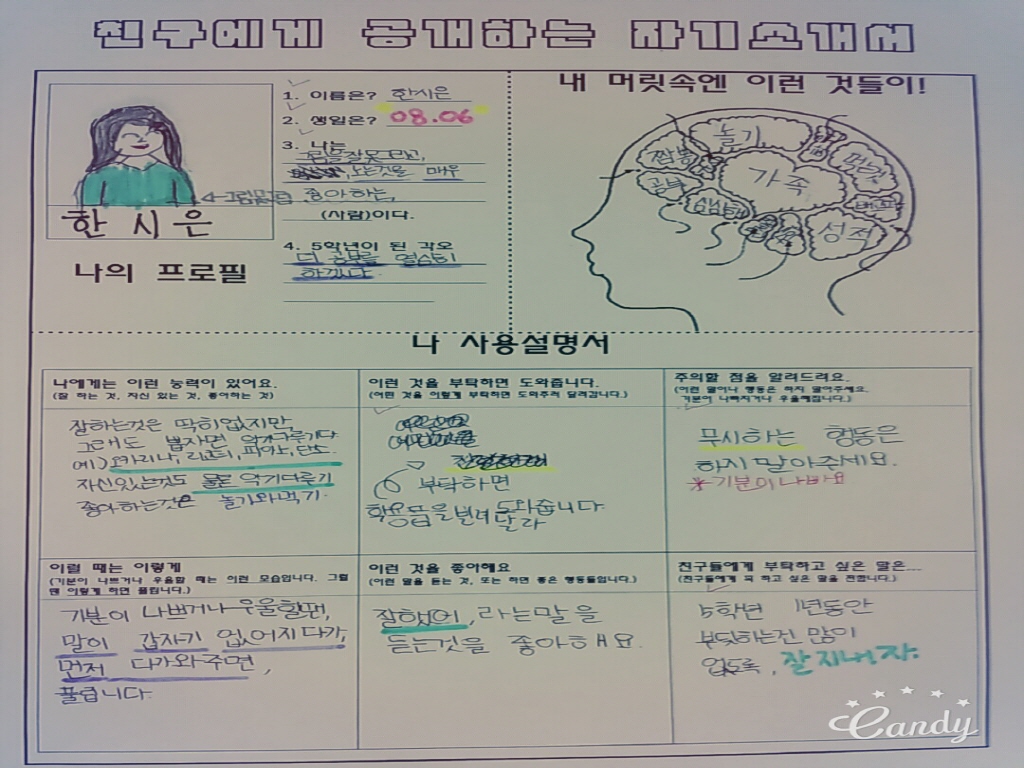 친구에게 공개하는 자기소개서
1. 이름은? 한시은
2. 생일은? 08.06
3. 나는
그림을 잘 못 그리고,
노는것을 매우
좋아하는
(사람)이다.
4. 5학년이 된 각오
더 공부를 열심히
하겠다.
한시은
나의 프로필
내 머릿속엔 이런 것들이!
놀기
짬뽕
가족
공부
성적
나 사용설명서
나에게는 이런 능력이 있어요.
(잘 하는 것, 자신 있는 것, 좋아하는 것)
잘하는것은 딱히없지만
그래도 뽑자면 악기다루기다
예) 오카리나, 리코더, 피아노, 단소.
자신있는것도 물론 악기다루기
좋아하는것은 놀기와먹기.
이런 것을 부탁하면 도와줍니다.
(어떤 것을 이렇게 부탁하면 도와주러 달려갑니다.)
부탁하면
학용품을 빌려 도와줍니다.
달라
주의할 점을 알려드려요.
(이런 말이나 행동은 하지 말아주세요.
기분이 나빠지거나 우울해집니다.)
무시하는 행동은
하지 말아주세요.
*기분이 나빠요
이럴 때는 이렇게
(기분이 나쁘거나 우울할 때는 이런 모습입니다. 그럴
땐 이렇게 하면 풀립니다.)
기분이 나쁘거나 우울할땐,
말이 갑자기 없어지다가,
먼저 다가와주면,
풀립니다.
이런 것을 좋아해요
(이런 말을 듣는 것, 또는 하면 좋은 행동들입니다.)
잘했어, 라는말을
듣는것을 좋아해요.
친구들에게 부탁하고 싶은 말은...
(친구들에게 꼭 하고 싶은 말을 전합니다.)
5학년 1년동안
부딪히는건 많이
없도록, 잘 지내자.
Candy